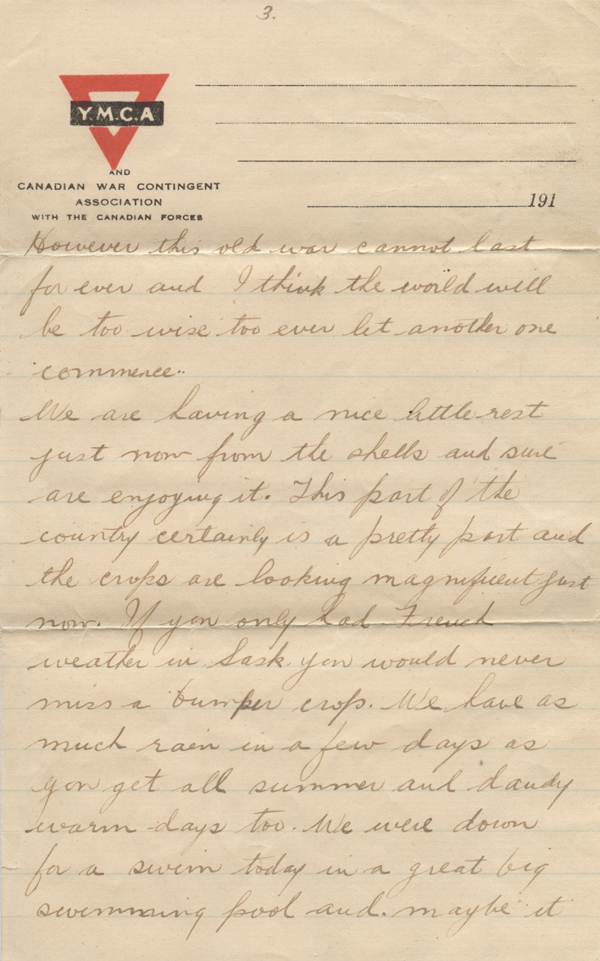 3.
Y.M.C.A
AND
CANADIAN WAR CONTINGENT
ASSOCIATION
WITH THE CANADIAN FORCES
191
However this old war cannot last
for ever and I think the world will
be too wise too ever let another one
commence.
We are having a nice little rest
just now from the shells and sure
are enjoying it. This part of the
country certainly is a pretty part and
the crops are looking magnificent just
now. If you only had French
weather in Sask you would never
miss a bumper crop. We have as
much rain in a few days as
you get all summer and dandy
warm days too. We were down
for a swim today in a great big
swimming pool and. maybe it